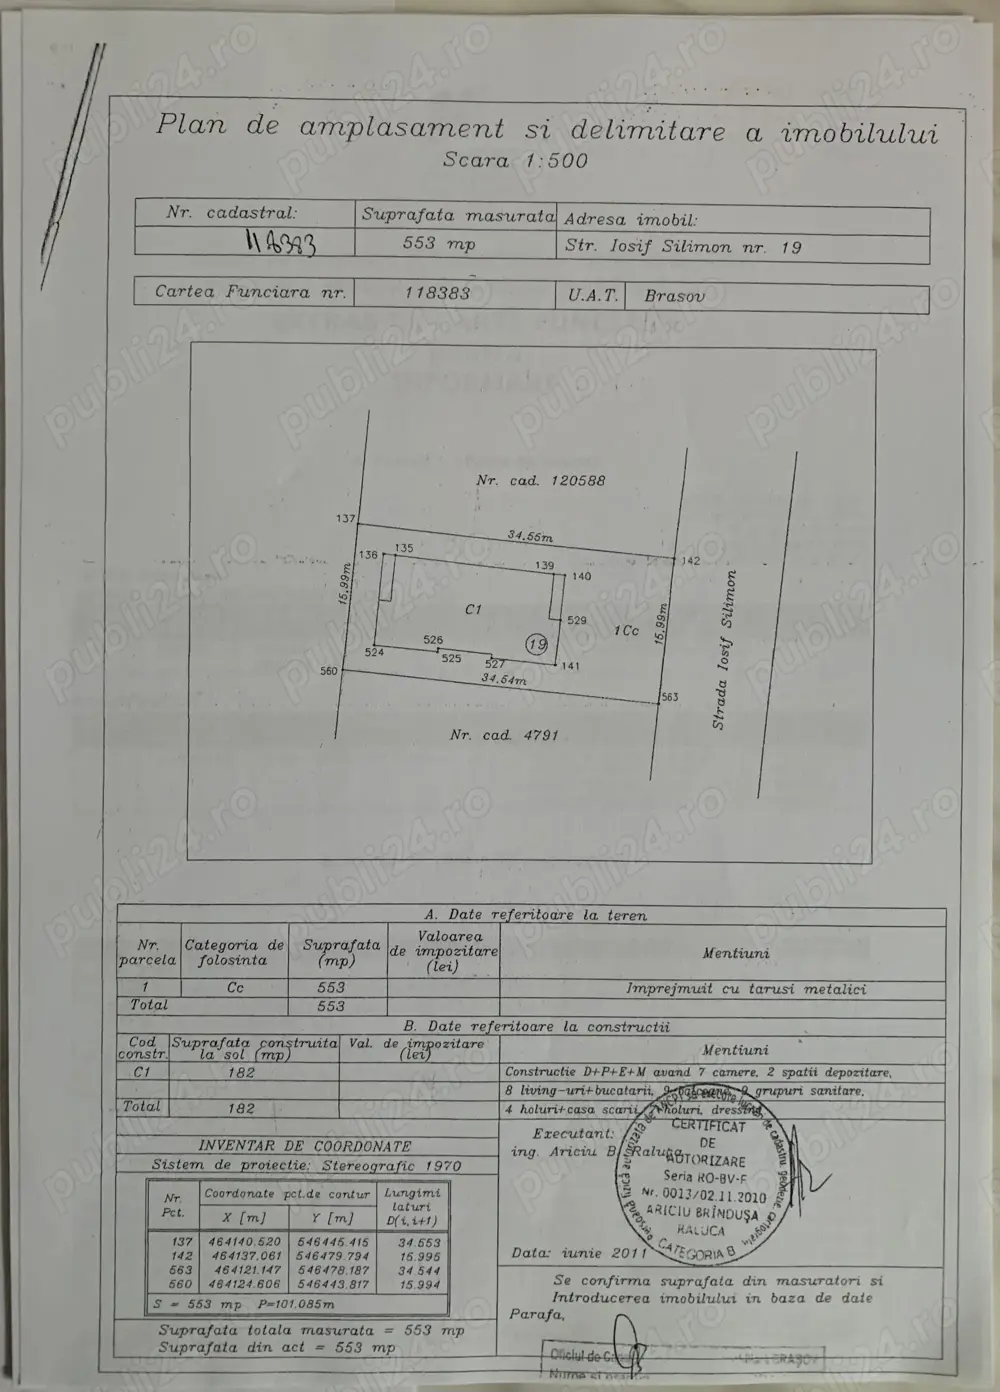 Plan de amplasament si delimitare a imobilului
Scara 1:500
Nr. cadastral:
Suprafata masurata
Adresa imobil:
118383
553 mp
Str. Iosif Silimon nr. 19
Cartea Funciara nr.
118383
U.A.T.
Brasov
Nr. cad. 120588
137
34.55m
136
135
139
140
142
15.99m
C1
529
1Cc
15.99m
Strada Iosif Silimon
526
19
524
525
527
141
560
34.54m
563
Nr. cad. 4791
A. Date referitoare la teren
Nr. parcela
Categoria de folosinta
Suprafata (mp)
Valoarea de impozitare (lei)
Mentiuni
1
Cc
553
Imprejmuit cu tarusi metalici
Total
553
B. Date referitoare la constructii
Cod constr.
Suprafata construita la sol (mp)
Val. de impozitare (lei)
Mentiuni
C1
182
Constructie D+P+E+M avand 7 camere, 2 spatii depozitare,
8 living-uri+bucatarii, 9 balcoane, 9 grupuri sanitare,
Total
182
4 holuri+casa scarii, holuri, dressing
INVENTAR DE COORDONATE
Sistem de proiectie: Stereografic 1970
Nr. Pct.
Coordonate pct.de contur
Lungimi laturi D(i,i+1)
X [m]
Y [m]
137 464140.520 546445.415 34.553
142 464137.061 546479.794 15.995
563 464121.147 546478.187 34.544
560 464124.606 546443.817 15.994
S = 553 mp P=101.085m
Suprafata totala masurata = 553 mp
Suprafata din act = 553 mp
Executant:
ing. Ariciu B. Raluca
CERTIFICAT
DE
AUTORIZARE
Seria RO-BV-F
Nr. 0013/02.11.2010
ARICIU BRÎNDUŞA
RALUCA
CATEGORIA B
Data: iunie 2011
Se confirma suprafata din masuratori si
Introducerea imobilului in baza de date
Parafa,
Oficiul de
publi24.ro